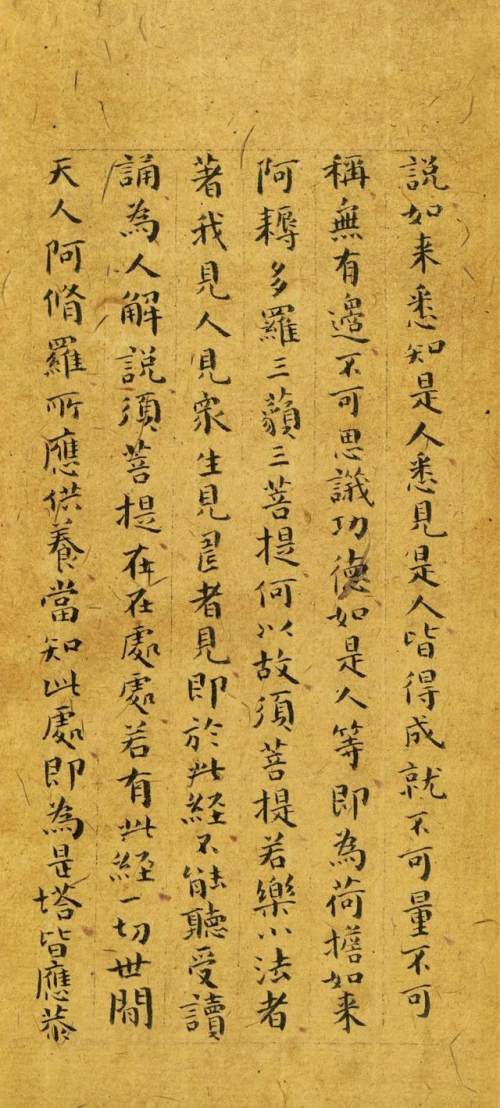 説如来悉知是人悉見是人皆得成就不可量不可
稱無有邊不可思議功德如是人等即為荷擔如来
阿耨多羅三藐三菩提何以故須菩提若樂小法者
著我見人見衆生見壽者見即於此経不能聽受讀
誦為人解說須菩提在在處處若有此経一切世間
天人阿脩羅所應供養當知此處即為是塔皆應恭